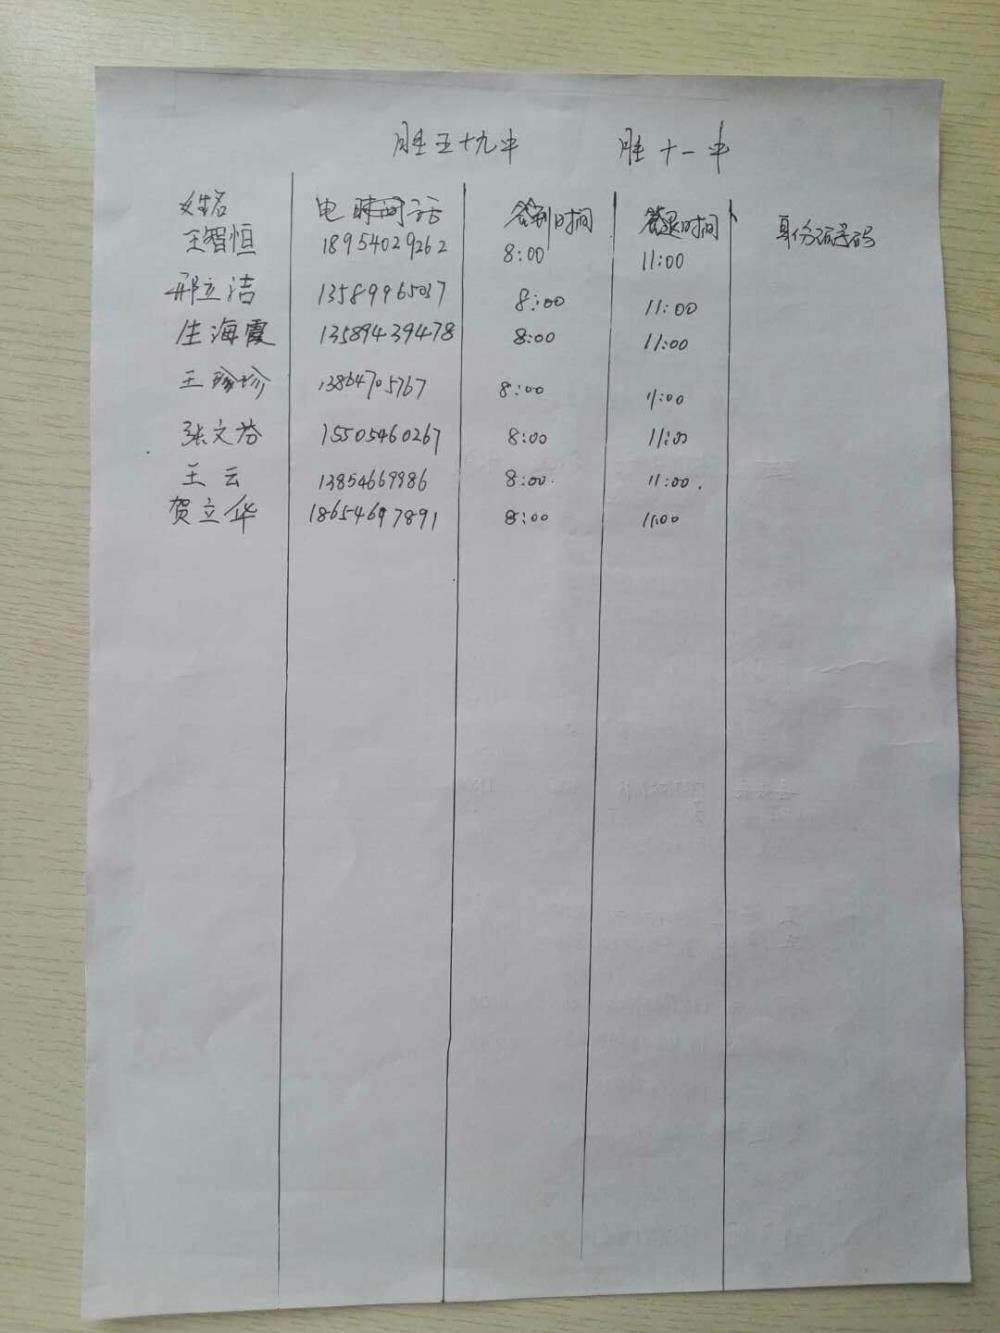 胜五十九中 胜十一中
姓名 电话 签到时间 签退时间 身份证号码
王智恒 18954029262 8:00 11:00
邢立洁 13589965037 8:00 11:00
生海霞 13589439478 8:00 11:00
王珍珍 13864705767 8:00 11:00
张文芬 15505460267 8:00 11:00
王云 13854669986 8:00. 11:00.
贺立华 18654697891 8:00 11:00